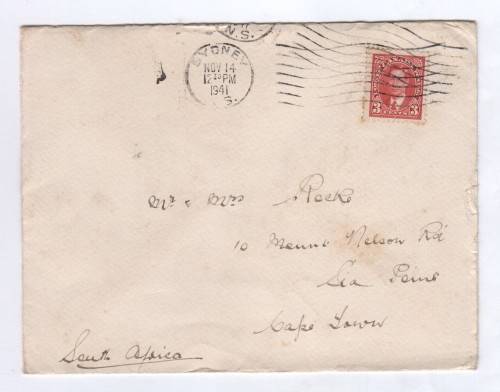 N.S.
SYDNEY
NOV 14
12 30 PM
1941
S.
CANADA
3 3
CENTS
Mr & Mrs Rocke
10 Mount Nelson Rd
Sea Point
Cape Town
South Africa